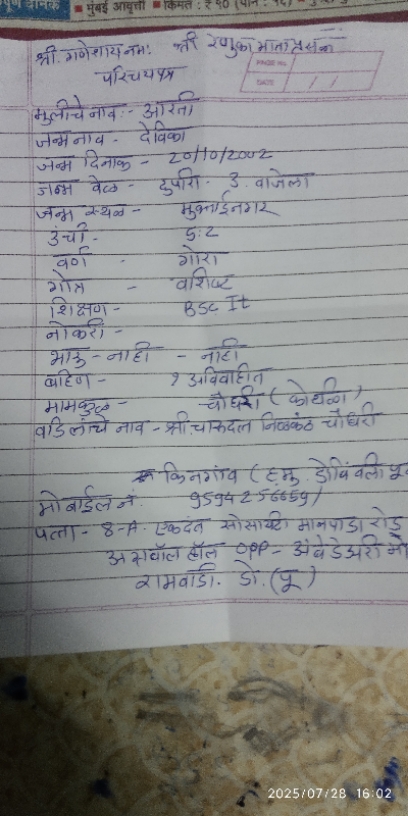 मुंबई आवृत्ती ■ किंमत : ₹ १०
श्री. गणेशाय नमः श्री रेणुका माता प्रसन्न
PAGE NO.
DATE / /
परिचय पत्र
मुलीचे नाव :- आरती
जन्म नाव - देविका
जन्म दिनांक - 20/10/2002
जन्म वेळ - दुपारी. 3. वाजेला
जन्म स्थळ - मुक्ताईनगर
उंची - 5:2
वर्ण - गोरा
गोत्र - वशिष्ट
शिक्षण - BSC It
नोकरी -
भाऊ - नाही - नाही
बहिण - १ अविवाहीत
मामकुळ - चौधरी (कोथळी)
वडिलांचे नाव - श्री. चारुदत्त निळकंठ चौधरी
किनगांव (ह.मु. डोंबिवली पू
मोबाईल नं. 9594256659
पत्ता - 8-A. एकदंत सोसायटी मानपाडा रोड
हॉल OPP -
रामवाडी. डों. (पू)
2025/07/28 16:02